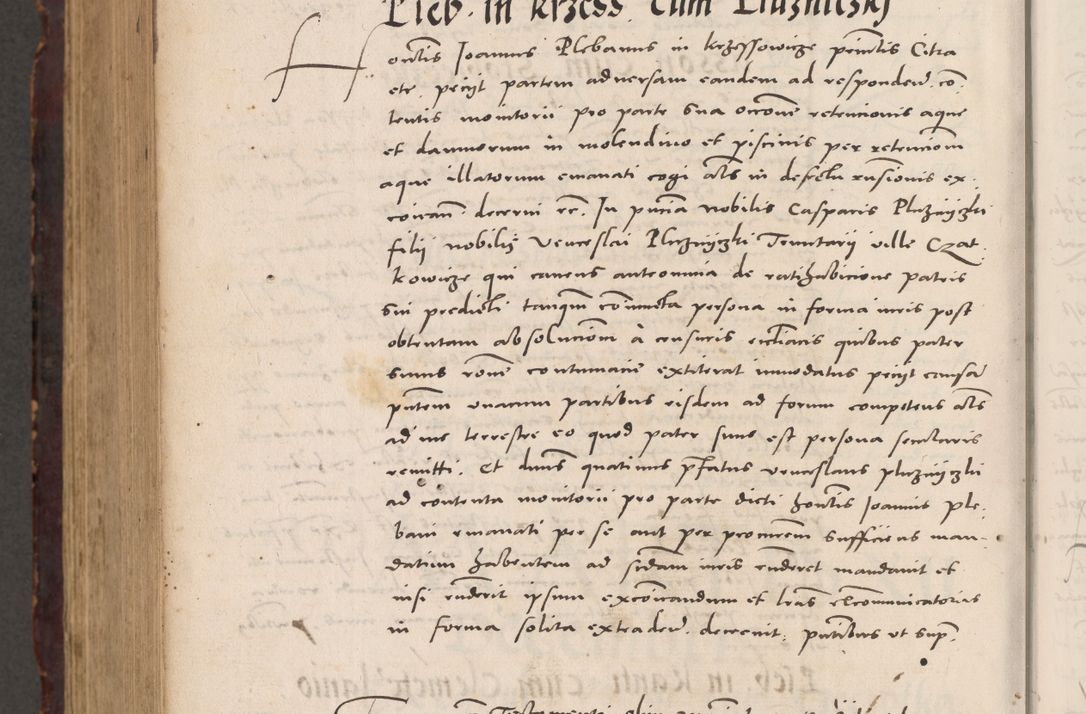 Pleb. in krzess. cum Pluznitzkj
Honestis Joannis Plebanus in krzessowicze pnitis Citra
etc. peciit partem adversam eandem ad respondend. co.
tentis monitorii pro parte sua occone retencionis aque
et damnorum in molendino et piscinis per retencionem
aque illatorum emanati cogi als in defectu rusionis ex.
coicari decerni etc. In pncia nobilis Casparis Pluznyzki
filii nobilis Venceslai Pluznyzki Tenutarii ville Czat.
kowicze qui cavens anteomnia de ratihabicione patris
sui predicti tanqm coniuncta persona in forma iuris post
obtentam absolucionem à censuris ecclasticis quibus pater
suus rone contumacie extiterat innodatus peciit causam
pntem unacum partibus eisdem ad forum competens als
ad ius terrestre eo quod pater suus est persona secularis
remitti. Et dnus quatinus pfatus venceslaus pluznyzki
ad contenta monitorii pro parte dicti honestis Joannis Ple.
bani emanati per se aut per procurem sufficiens man-
datum habentem ad sedam iuris runderet mandavit et
nisi runderit ipsum excoicandum et lras excommunicatorias
in forma solita extradend. decrevit. pntibus ut sup.
Pleb. in Kanti cum Clemente lanio